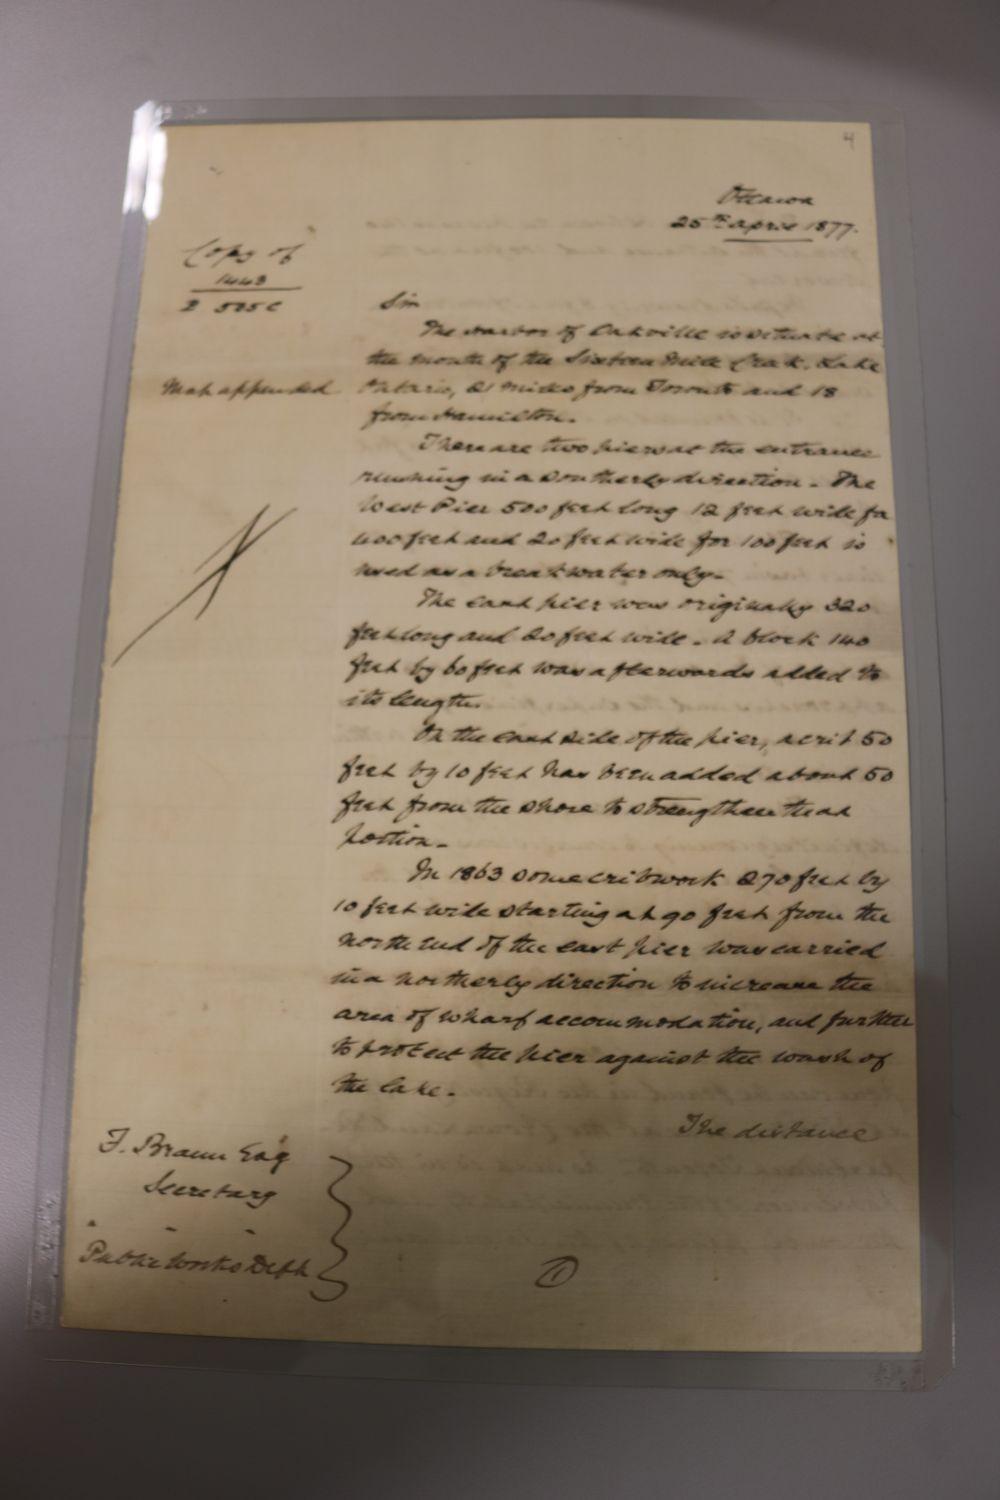 4
Ottawa
25th april 1877.
Copy of
1443
585c
Sir
The Harbor of Oakville is situate at
the mouth of the Sixteen Mile Creek, Lake
Map appended
Ontario, 21 miles from Toronto and 18
from Hamilton.
There are two piers at the entrance
running in a southerly direction. The
West Pier 500 feet long 12 feet wide for
400 feet and 20 feet wide for 100 feet is
used as a breakwater only.
The east pier was originally 320
feet long and 20 feet wide. A block 140
feet by 60 feet was afterwards added to
its length.
On the east side of the pier, a crib 50
feet by 10 feet has been added about 50
feet from the shore to strengthen that
portion.
In 1863 some cribwork 270 feet by
10 feet wide starting at 90 feet from the
north end of the east pier was carried
in a northerly direction to increase the
area of wharf accommodation, and further
to protect the pier against the wash of
the lake.
The distance
F. Braun Esq
Secretary
" " "
Public Works Dept
1